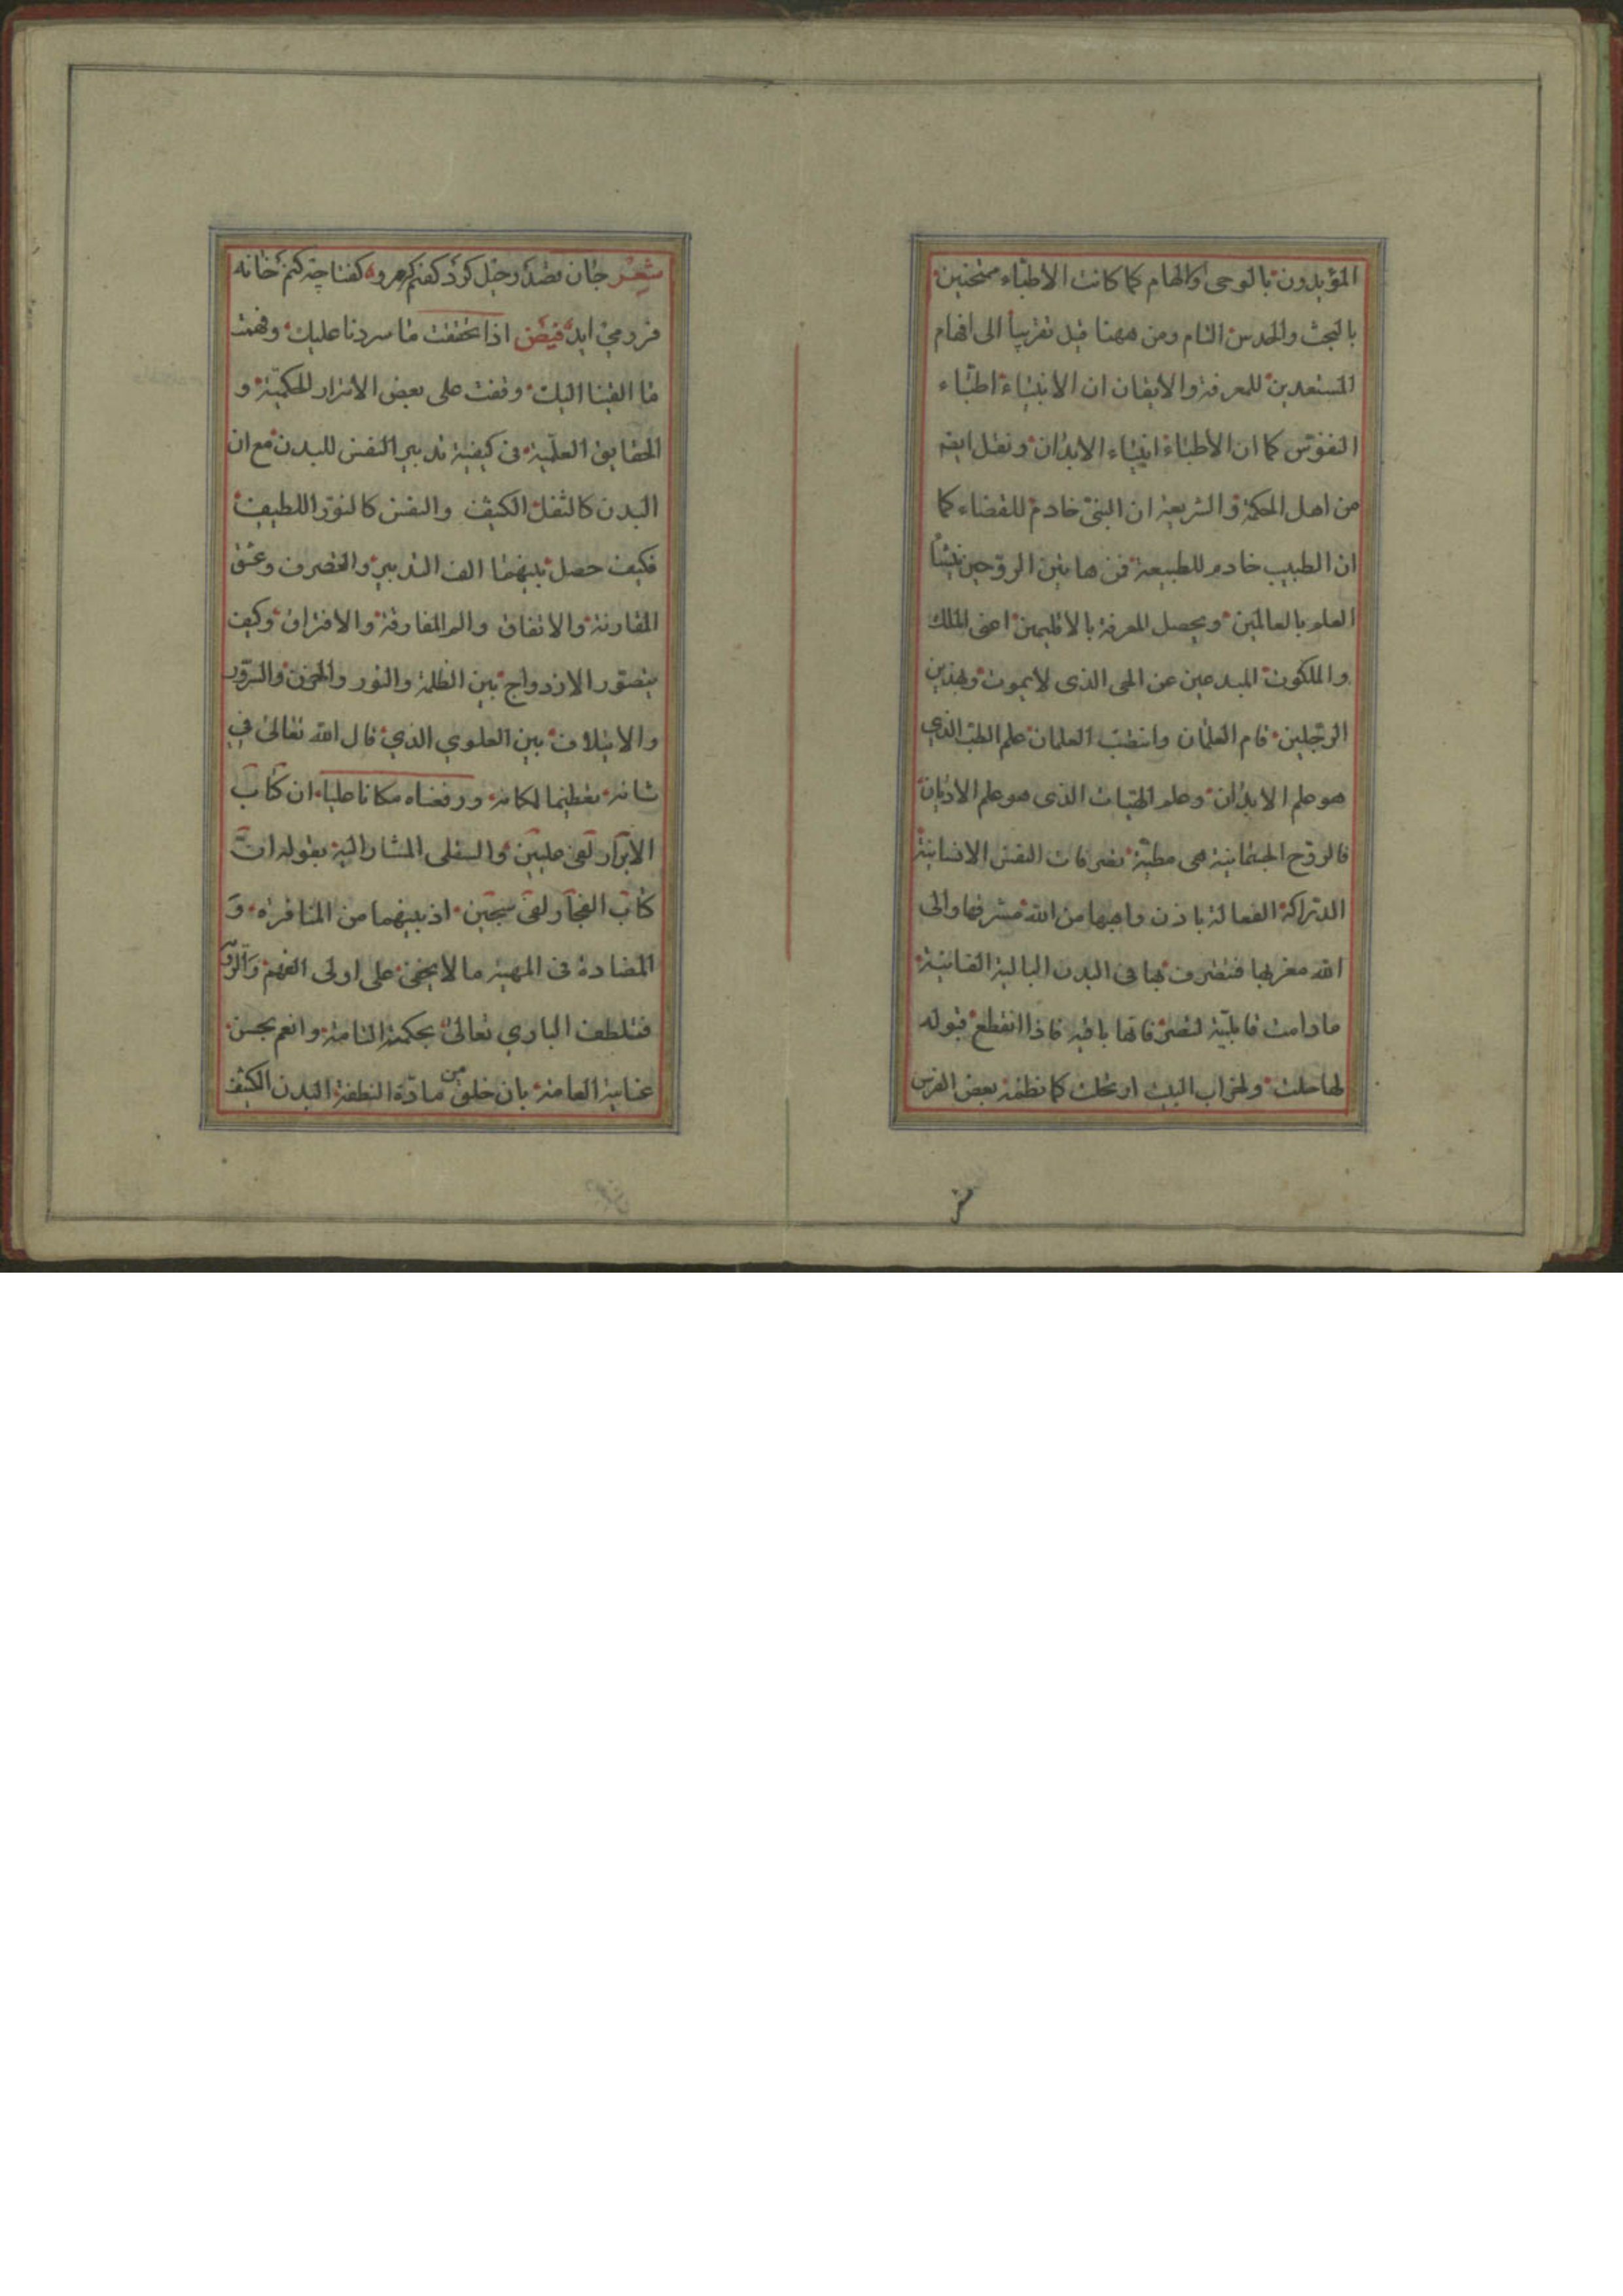 المؤيدون بالوحى والالهام كما كانت الأطباء ممتحنين
بالبحث والحدس التام ومن ههنا قيل تقريباً الى افهام
المستعدين للمعرفة والايقان ان الانبياء اطباء
النفوس كما ان الأطباء انبياء الابدان ونقل ايضا
من اهل الحكمة والشريعة ان النبى خادم للقضاء كما
ان الطبيب خادم للطبيعة فمن هاتين الروحين
العلم بالعالمين ويحصل المعرفة بالاقليمين اعنى الملك
والملكوت المبدعين عن الحى الذى لايموت وبهذين
الرجلين قام العلمان وانتصب العلمان علم الطب الذي
هو علم الابدان وعلم الهيات الذى هو علم الاديان
فالروح الجسمانية هى مطية تصرفات النفس الانسانية
الدراكة الفعالة باذن واهبها من الله مشرقها والى
الله مغربها فتصرف بها فى البدن البالية الفانية
مادامت قابلية لتصرفاتها باقيه فاذا انقطع قبوله
لها حلت ولخراب البيت ارتحلت كما نظمه بعض الفرس
شعر جان بصد رحيل كرد كفتم كه مرو كفتا چه كنم خانه
فرو مى ايد فيض اذا تحققت ما سردنا عليك وفهمت
ما القينا اليك وقفت على بعض الاسرار الحكمية و
الحقايق العلمية فى كيفية تدبير النفس للبدن مع ان
البدن كالثفل الكثيف والنفس كالنور اللطيف
فكيف حصل بينهما الف التدبير والتصرف وعشق
المقارنة والاتفاق والم المفارقة والافتراق وكيف
يتصور الازدواج بين الظلمة والنور والحزن والسرور
والايتلاف بين العلوي الذي قال الله تعالى في
شانه تعظيما لمكانه ورفعناه مكانا عليا ان كتاب
الابرار لفى عليين والسفلى المشار اليه بقوله ان
كتاب الفجار لفى سجين اذ بينهما من المنافرة و
المضادة فى المهية ما لا يخفى على اولى الفهم
فتلطف الباري تعالى بحكمته التامة وانعم بحسن
عنايته العامة بان خلق من مادة النطفة البدن الكثيف